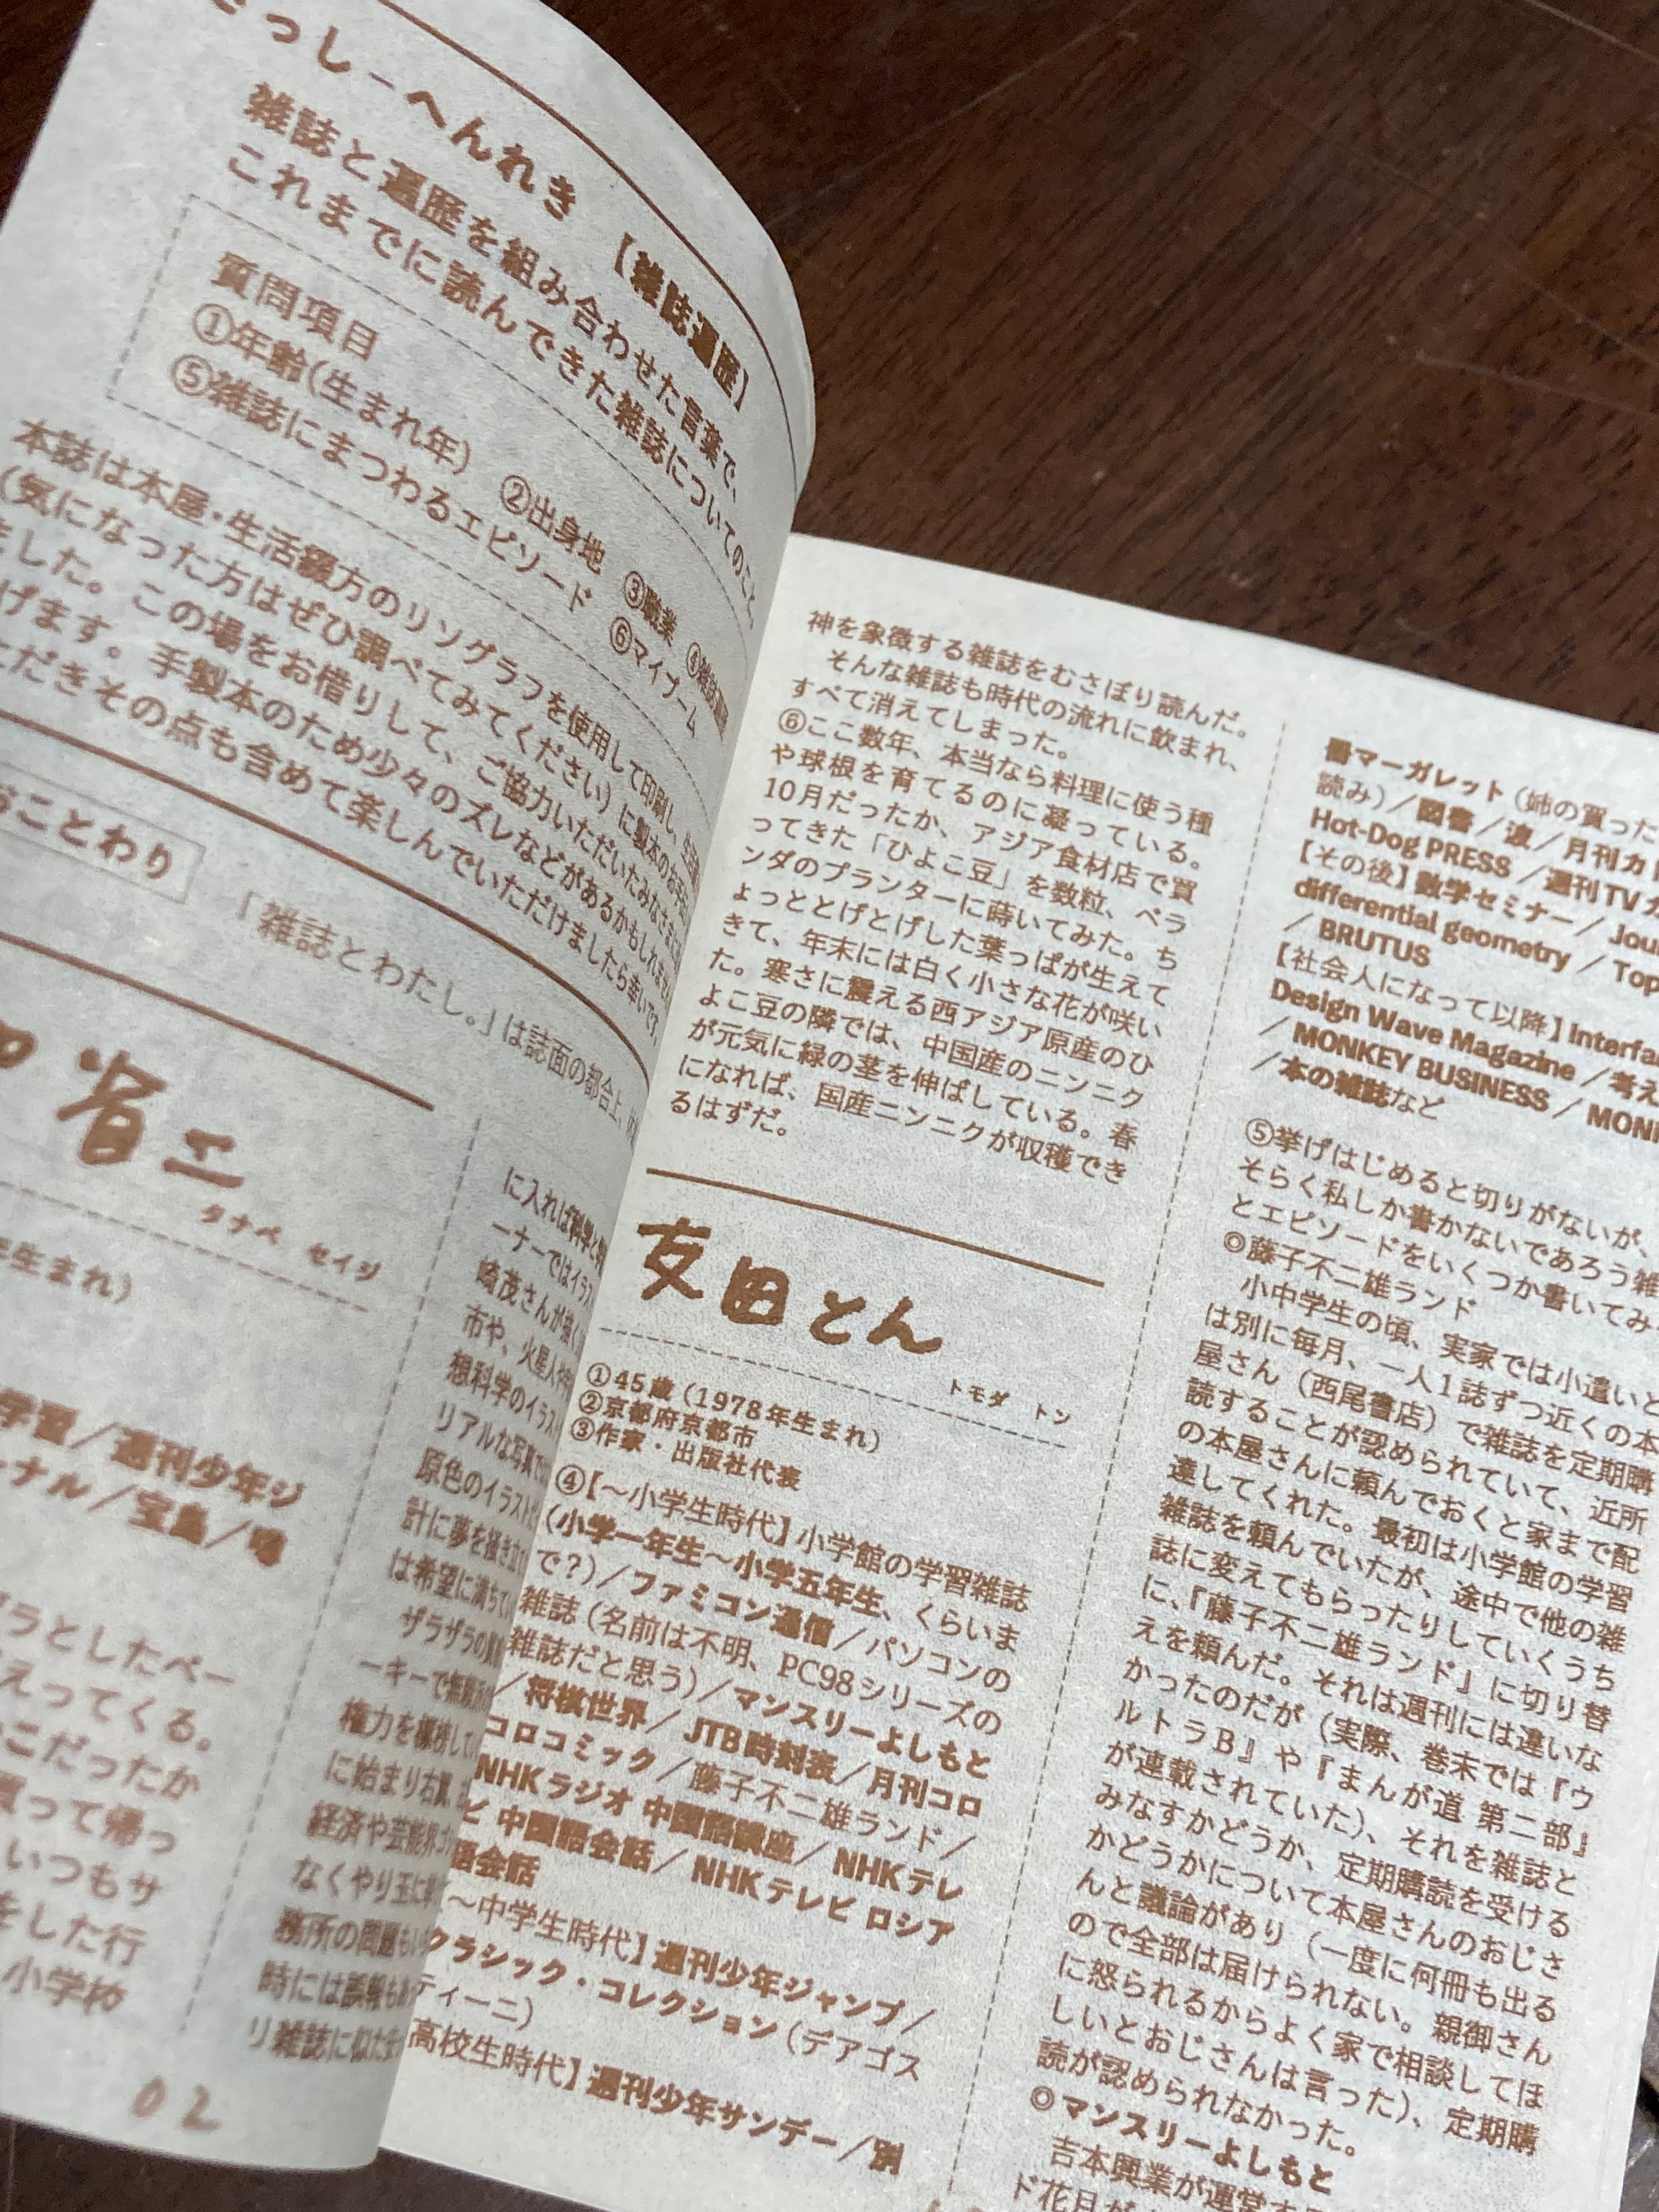 っしーへんれき 【雑誌遍歴】
雑誌と遍歴を組み合わせた言葉で、
これまでに読んできた雑誌についてのこと。
質問項目
①年齢(生まれ年) ②出身地 ③職業 ④雑誌遍歴
⑤雑誌にまつわるエピソード ⑥マイブーム
本誌は本屋・生活綴方のリソグラフを使用して印刷し、
(気になった方はぜひ調べてみてください)に製本のお手伝
ました。この場をお借りして、ご協力いただいたみなさまに
げます。手製本のため少々のズレなどがあるかもしれません
ただきその点も含めて楽しんでいただけましたら幸いです。
おことわり
「雑誌とわたし。」は誌面の都合上、
省二
タナベ セイジ
年生まれ)
学習/週刊少年ジ
ーナル/宝島/噂
ラとしたペー
えってくる。
こだったか
買って帰っ
いつもサ
をした行
小学校
に入れば科学と学
ーナーではイラス
崎茂さんが描く
市や、火星人や
想科学のイラスト
リアルな写真で
原色のイラスト
計に夢を掻き立
は希望に満ちてい
ザラザラの
ーキーで無
権力を標榜してい
に始まり右翼、
経済や芸能界
なくやり玉に
務所の問題も
時には誤報も
リ雑誌に似た
02
神を象徴する雑誌をむさぼり読んだ。
そんな雑誌も時代の流れに飲まれ、
すべて消えてしまった。
⑥ここ数年、本当なら料理に使う種
や球根を育てるのに凝っている。
10月だったか、アジア食材店で買
ってきた「ひよこ豆」を数粒、ベラ
ンダのプランターに蒔いてみた。ち
ょっととげとげした葉っぱが生えて
きて、年末には白く小さな花が咲い
た。寒さに震える西アジア原産のひ
よこ豆の隣では、中国産のニンニク
が元気に緑の茎を伸ばしている。春
になれば、国産ニンニクが収穫でき
るはずだ。
友田とん
トモダ トン
①45歳(1978年生まれ)
②京都府京都市
③作家・出版社代表
④【〜小学生時代】小学館の学習雑誌
(小学一年生〜小学五年生、くらいま
で?)/ファミコン通信/パソコンの
雑誌(名前は不明、PC98シリーズの
雑誌だと思う)/マンスリーよしもと
/将棋世界/JTB時刻表/月刊コロ
コロコミック/藤子不二雄ランド/
NHKラジオ 中国語講座/NHKテレ
ビ 中国語会話/NHKテレビ ロシア
語会話
〜中学生時代】週刊少年ジャンプ/
クラシック・コレクション(デアゴス
ティーニ)
高校生時代】週刊少年サンデー/別
冊マーガレット(姉の買った
読み)/図書/波/月刊カド
Hot-Dog PRESS/週刊TVガ
【その後】数学セミナー/Jour
differential geometry/Top
/BRUTUS
【社会人になって以降】Interfac
Design Wave Magazine/考え
/MONKEY BUSINESS/MONK
/本の雑誌など
⑤挙げはじめると切りがないが、
そらく私しか書かないであろう雑
とエピソードをいくつか書いてみ
◎藤子不二雄ランド
小中学生の頃、実家では小遣いと
は別に毎月、一人1誌ずつ近くの本
屋さん(西尾書店)で雑誌を定期購
読することが認められていて、近所
の本屋さんに頼んでおくと家まで配
達してくれた。最初は小学館の学習
雑誌を頼んでいたが、途中で他の雑
誌に変えてもらったりしていくうち
に、『藤子不二雄ランド』に切り替
えを頼んだ。それは週刊には違いな
かったのだが(実際、巻末では『ウ
ルトラB』や『まんが道 第二部』
が連載されていた)、それを雑誌と
みなすかどうか、定期購読を受ける
かどうかについて本屋さんのおじさ
んと議論があり(一度に何冊も出る
ので全部は届けられない。親御さん
に怒られるからよく家で相談してほ
しいとおじさんは言った)、定期購
読が認められなかった。
◎マンスリーよしもと
吉本興業が運営する
ド花月が